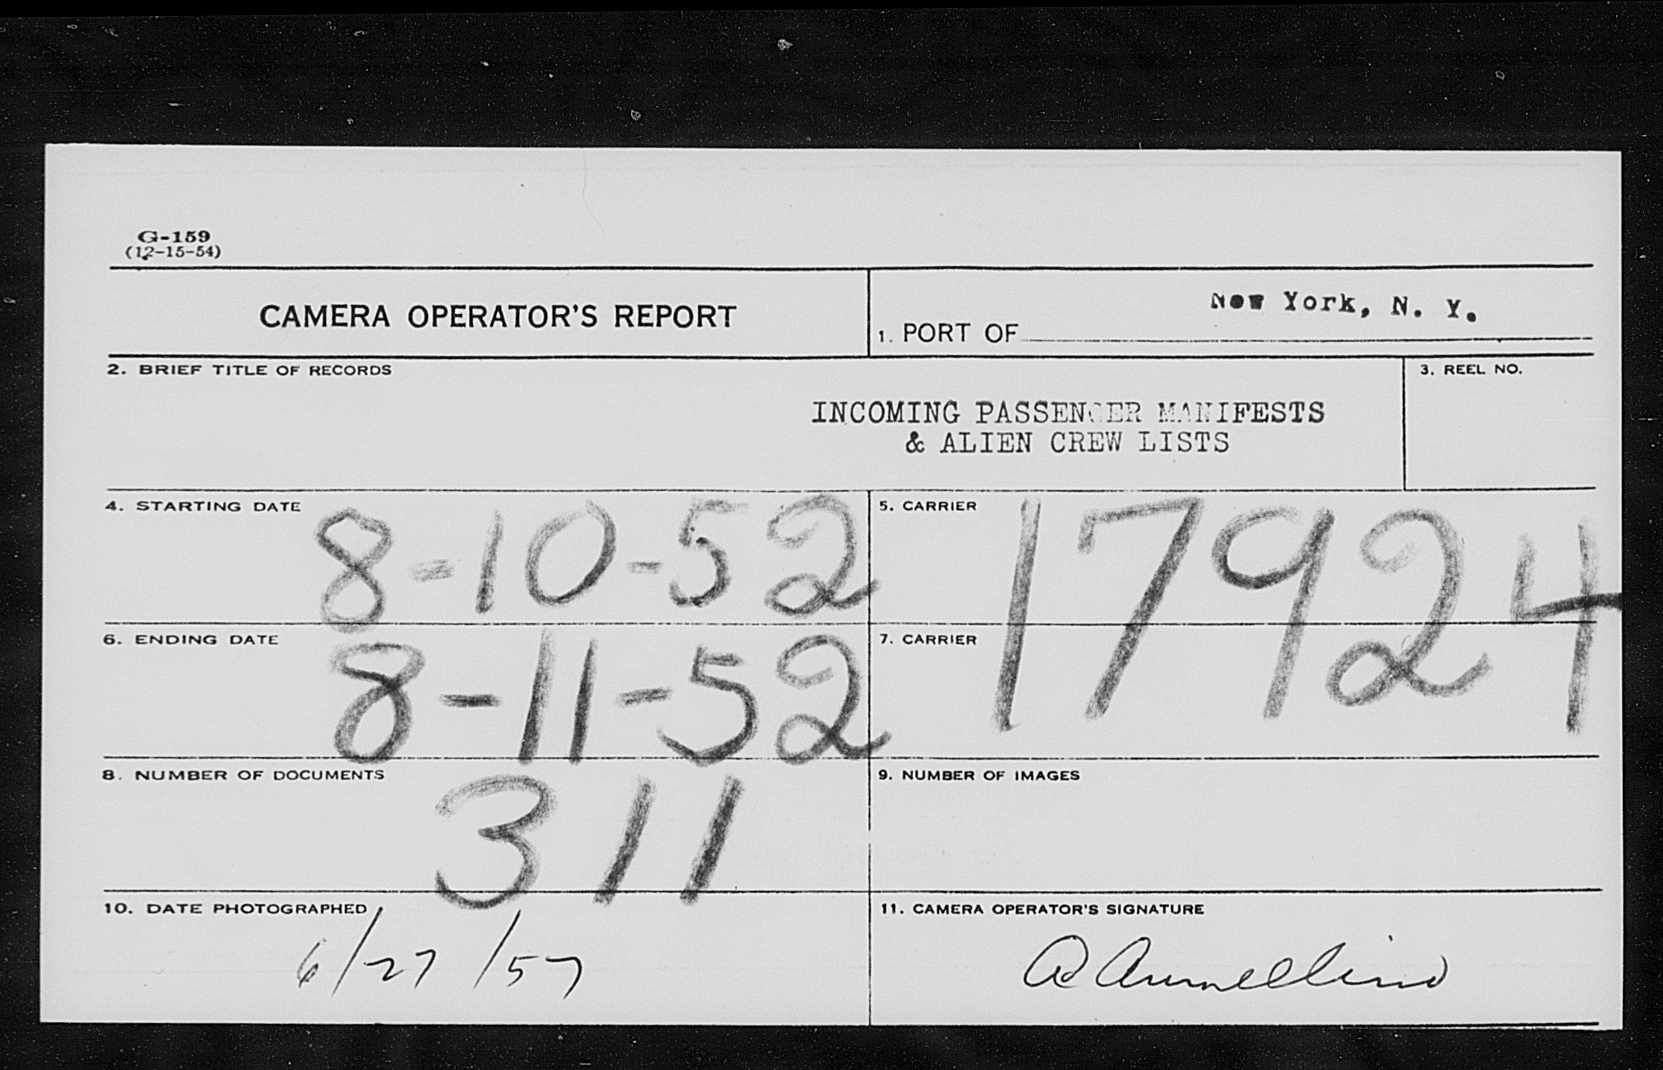 G-159
(12-15-54)
CAMERA OPERATOR'S REPORT
1. PORT OF New York, N. Y.
2. BRIEF TITLE OF RECORDS
3. REEL NO.
INCOMING PASSENGER MANIFESTS
& ALIEN CREW LISTS
4. STARTING DATE 8-10-52
5. CARRIER 17924
6. ENDING DATE 8-11-52
7. CARRIER
8. NUMBER OF DOCUMENTS 311
9. NUMBER OF IMAGES
10. DATE PHOTOGRAPHED 6/27/57
11. CAMERA OPERATOR'S SIGNATURE